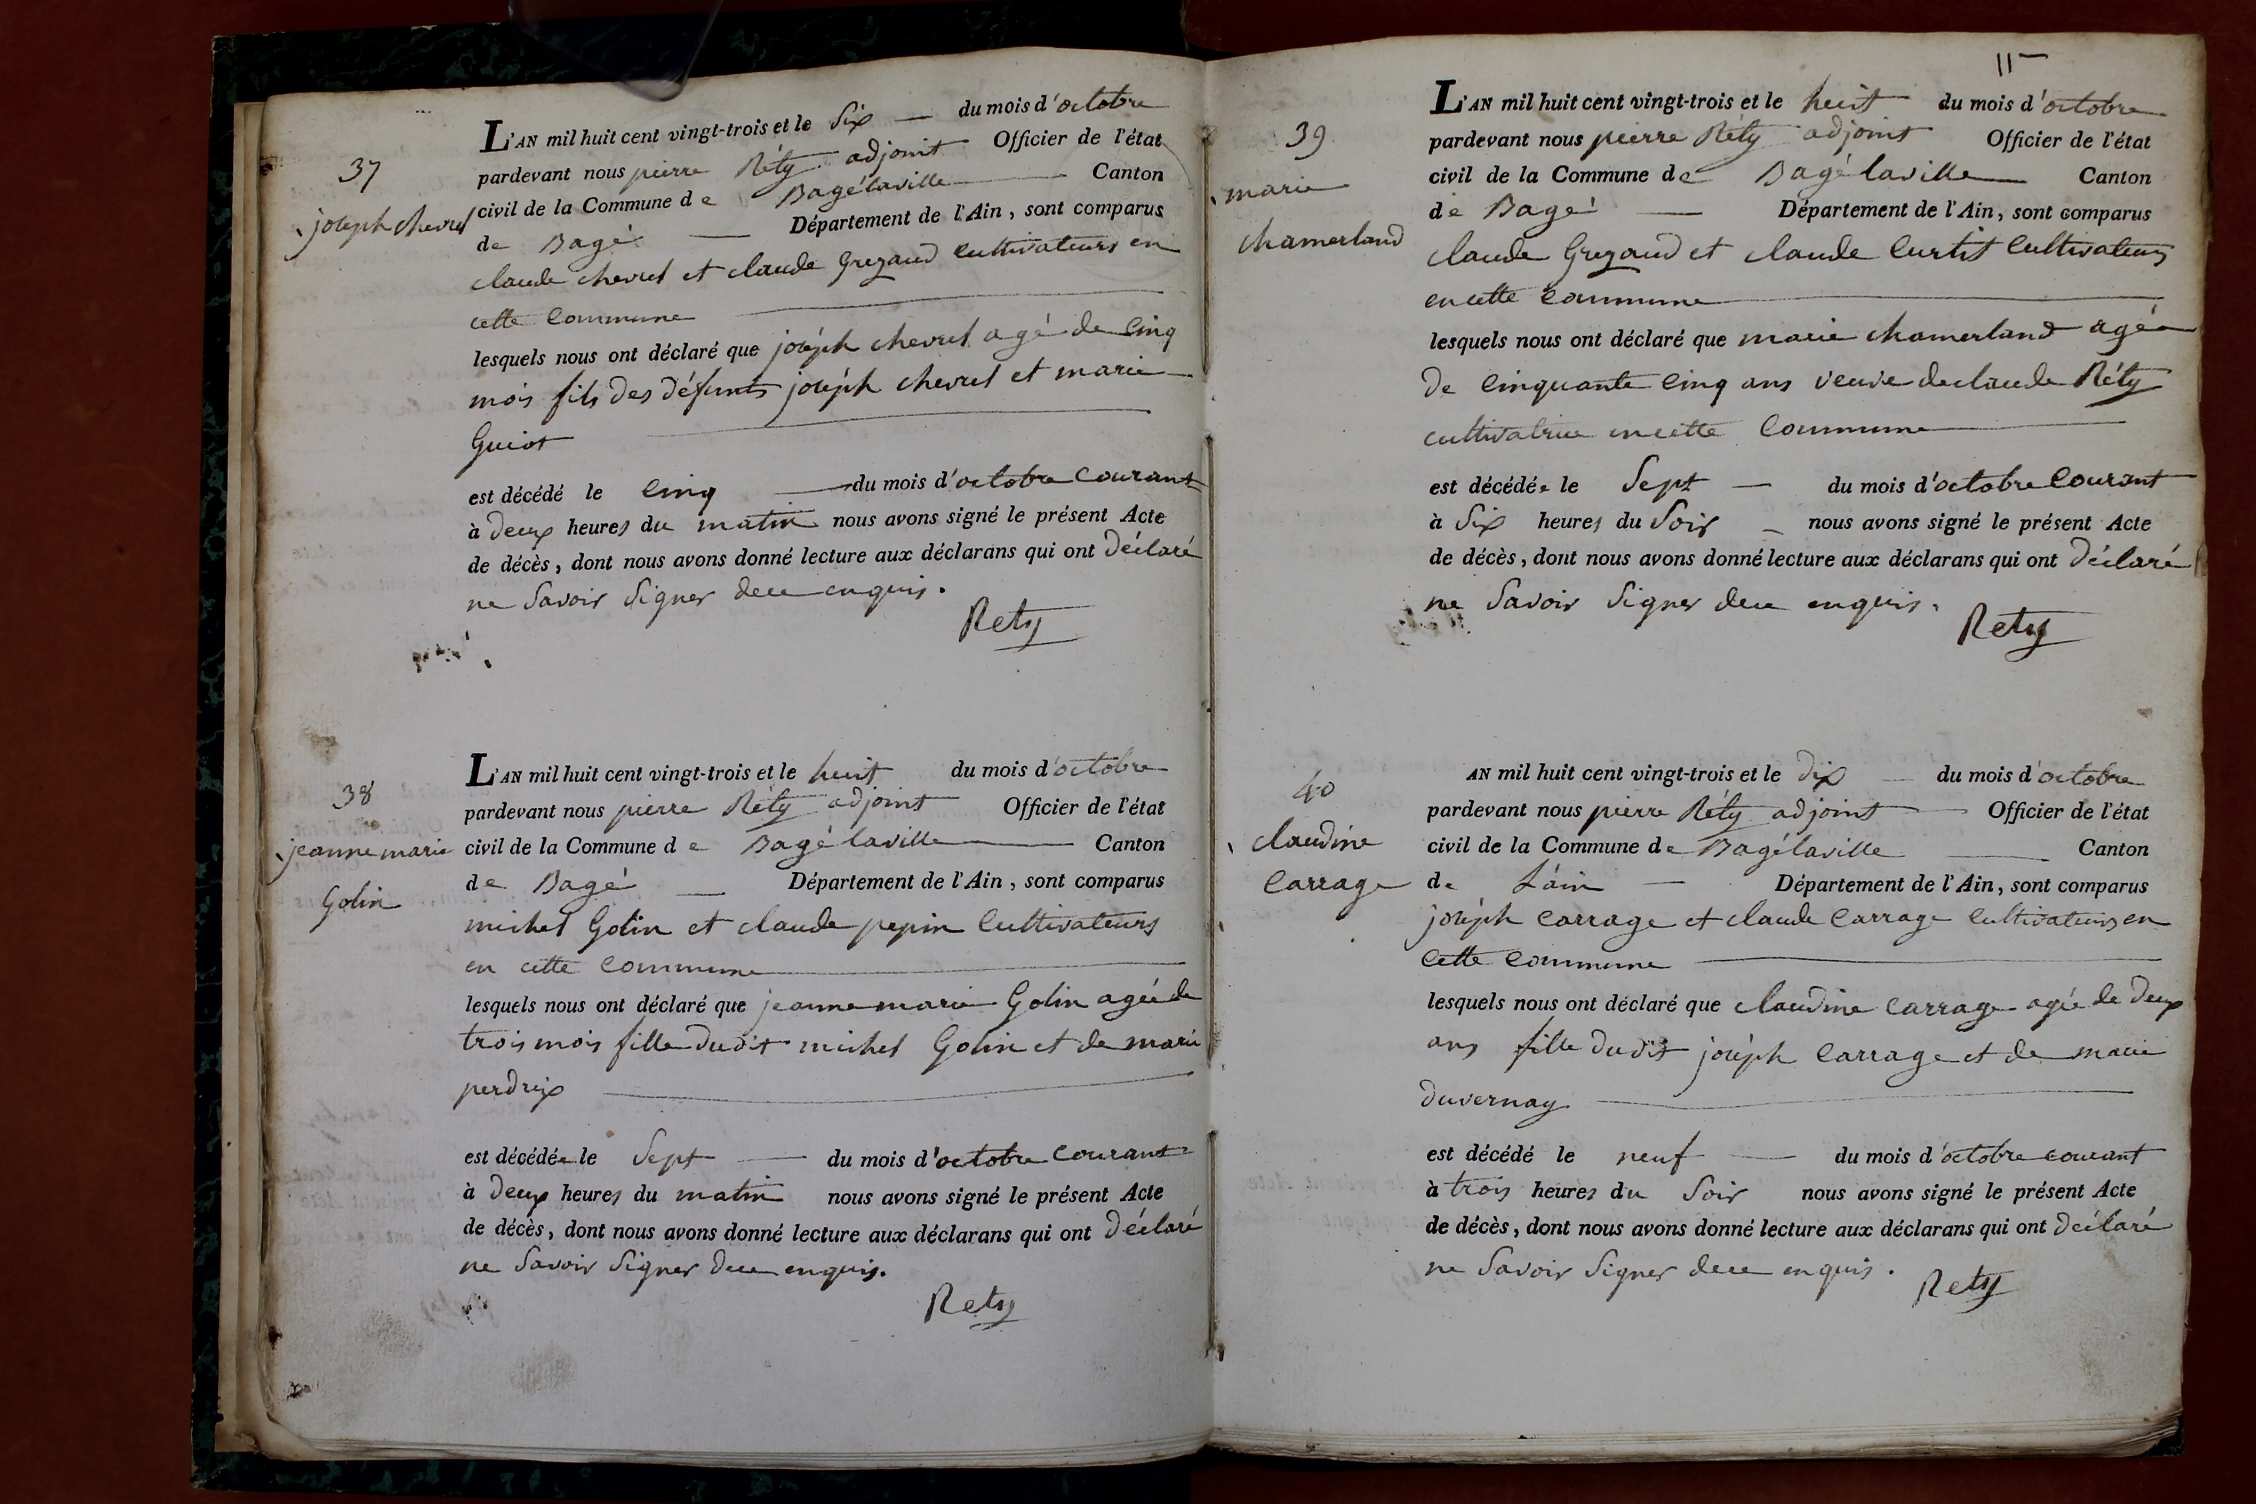 37
joseph chevrel
L'AN mil huit cent vingt-trois et le Six du mois d'octobre
pardevant nous pierre Réty adjoint Officier de l'état
civil de la Commune de Bagélaville Canton
de Bagé Département de l'Ain, sont comparus
claude chevrel et claude Grezaud Cultivateurs en
cette Commune
lesquels nous ont déclaré que joséph chevrel agé de Cinq
mois fils des défunts joséph chevrel et marie
Guiot
est décédé le Cinq du mois d'octobre Courant
à deux heures du matin nous avons signé le présent Acte
de décès, dont nous avons donné lecture aux déclarans qui ont déclaré
ne Savoir Signer dece enquis.
Rety
38
jeanne marie
Golin
L'AN mil huit cent vingt-trois et le huit du mois d'octobre
pardevant nous pierre Réty adjoint Officier de l'état
civil de la Commune de Bagé laville Canton
de Bagé Département de l'Ain, sont comparus
michel Golin et claude pepin Cultivateurs
en cette Commune
lesquels nous ont déclaré que jeanne marie Golin agée de
trois mois fille dudit michel Golin et de marie
perdrix
est décédée le Sept du mois d'octobre Courant
à deux heures du matin nous avons signé le présent Acte
de décès, dont nous avons donné lecture aux déclarans qui ont déclaré
ne Savoir Signer dece enquis.
Rety
11
39
marie
chamerland
L'AN mil huit cent vingt-trois et le huit du mois d'octobre
pardevant nous pierre Réty adjoint Officier de l'état
civil de la Commune de Bagé laville Canton
de Bagé Département de l'Ain, sont comparus
claude Grezaud et claude Curtit Cultivateurs
en cette Commune
lesquels nous ont déclaré que marie chamerland agée
de Cinquante Cinq ans veuve de claude Réty
cultivatrice en cette Commune
est décédée le Sept du mois d'octobre Courant
à Six heures du Soir nous avons signé le présent Acte
de décès, dont nous avons donné lecture aux déclarans qui ont déclaré
ne Savoir Signer dece enquis.
Rety
40
claudine
Carrage
AN mil huit cent vingt-trois et le dix du mois d'octobre
pardevant nous pierre Réty adjoint Officier de l'état
civil de la Commune de Bagélaville Canton
de Láin Département de l'Ain, sont comparus
joséph Carrage et claude Carrage Cultivateurs en
Cette Commune
lesquels nous ont déclaré que claudine Carrage agée de deux
ans fille dudit joséph Carrage et de marie
duvernay
est décédé le neuf du mois d'octobre courant
à trois heures du Soir nous avons signé le présent Acte
de décès, dont nous avons donné lecture aux déclarans qui ont déclaré
ne Savoir Signer dece enquis.
Rety